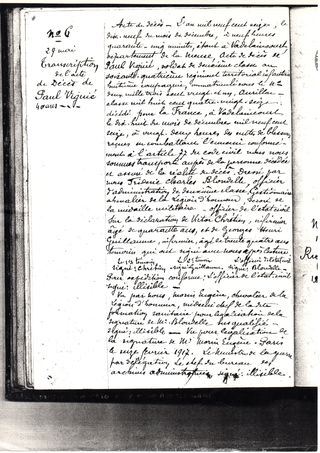 No 6
29 mai
Transcription
de l'acte
de Décès de
Paul Vigué
40 ans
Acte de décès - L'an mil neuf cent seize, le
dix-neuf du mois de décembre, à neuf heures
quarante-cinq minutes, étant à Vadelaincourt
département de la Meuse, Acte de décès de
Paul Vigué, soldat de deuxième classe au
soixante-quatrième régiment territorial infanterie
huitième compagnie, immatriculé
deux mille trois cent vingt et un, Aurillac
classe mil huit cent quatre-vingt-seize,
décédé pour la France, à Vadelaincourt
le dix-huit du mois de décembre mil neuf cent
seize, à vingt-deux heures des suites de blessures
reçues en combattant l'ennemi conformé-
ment à l'article 77 du code civil nous nous
sommes transporté auprès de la personne décédée
et assuré de la réalité du décès. Dressé par
nous Frédéric Charles Blondelle, officier
d'administration de deuxième classe, Gestionnaire
chevalier de la Légion d'honneur, décoré de
la médaille militaire officier de l'état civil
Sur la déclaration de Victor Chrétien, infirmier
âgé de quarante ans, et de Georges Henri
Guillaume, infirmier, âgé de trente quatre ans
témoins qui ont signé avec nous après lecture
Le 1er témoin Le 2e témoin L'officier d'état civil
signé: Chrétien signé: Guillaume signé: Blondelle
Pour expédition conforme: L'officier de l'état civil
signé: illisible -
Vu par nous, Morin Eugène, chevalier de la
Légion d'honneur, médecin chef de la dite
formation sanitaire pour légalisation de la
signature de Mr Blondelle, susqualifié -
signé: illisible - Vu pour légalisation de
la signature de Mr Morin Eugène - Paris
le seize février 1917. Le Ministre de la guerre
par délégation. Le chef du bureau des
archives administratives signé: illisible